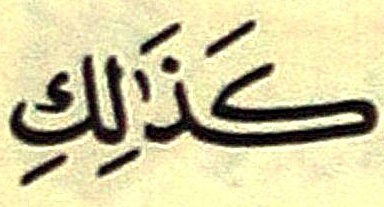 كَذَٰلِكِ